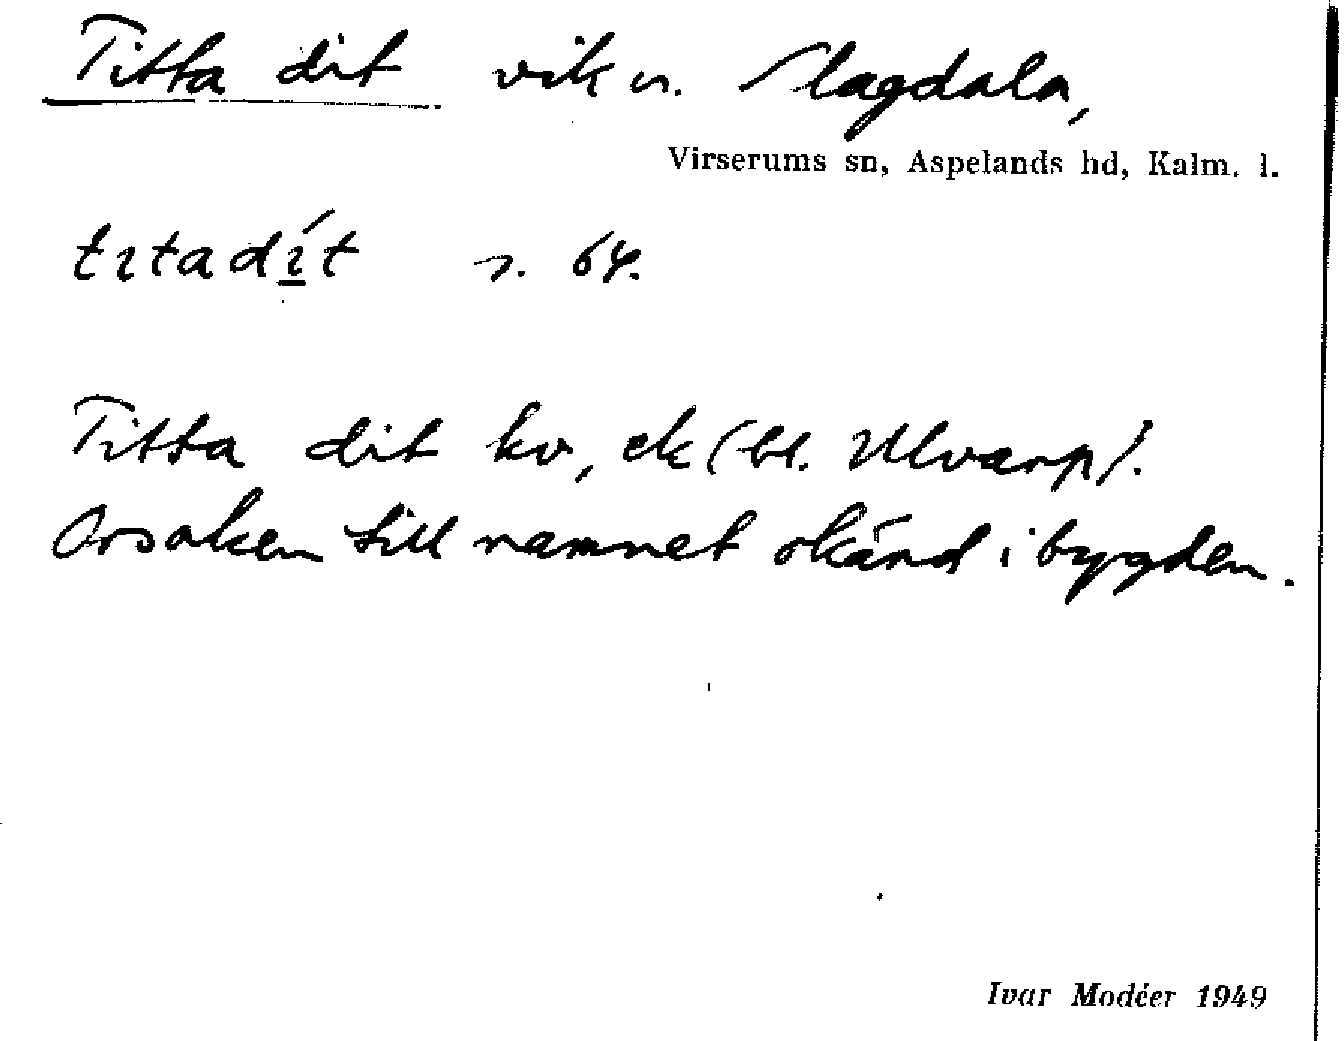 Titta dit vik v. Magdala,
Virserums sn, Aspelands hd, Kalm. l.
tɩtadɩ́t s. 64.
Titta dit kv, ek (bl. Ulvarp).
Orsaken till namnet okänd i bygden.
Ivar Modéer 1949